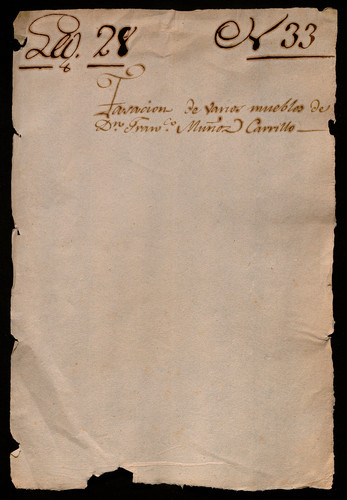 Leg. 28 N 33
8
Tasacion de varios muebles de
Dn. Franco. Muñoz Carrillo